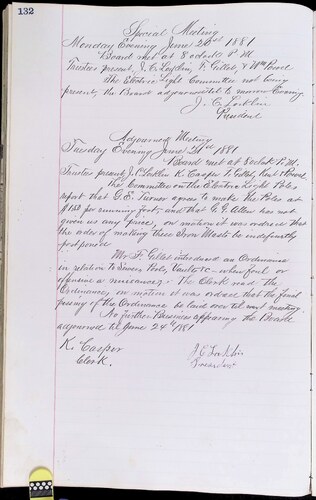 132
Special Meeting
Monday Evening June 20th 1881
Board met at 8 oclock P.M.
Trustees present, J. C. F. Gillet, & Wm
the Electric Light Committee not being
present, the Board adjourned til to morrow Evening.
J. C.
President
Adjourned Meeting
Tuesday Evening June 21st 1881
Board met at 8 oclock P.M.
Trustees present J. C. K. Casper F. Gillet,
the Committee on the Electric Light Poles
report that G. E. Turner agrees to make the Poles at
per running foot, and that G. G. Allen has not
given us any price, on motion it was ordered that
the idea of making these Iron Masts be indefinitly
postponed
Mr F. Gillet introduced an Ordinance
in relation to Sewers Pools, Vaults &c when foul or
offensive as nuisances. The Clerk read the
Ordinance, on motion it was ordered that the final
passing of the Ordinance be laid over til next meeting.
No further Business appearing the Board
adjourned til June 24th 1881
K. Casper J. C.
Clerk. President